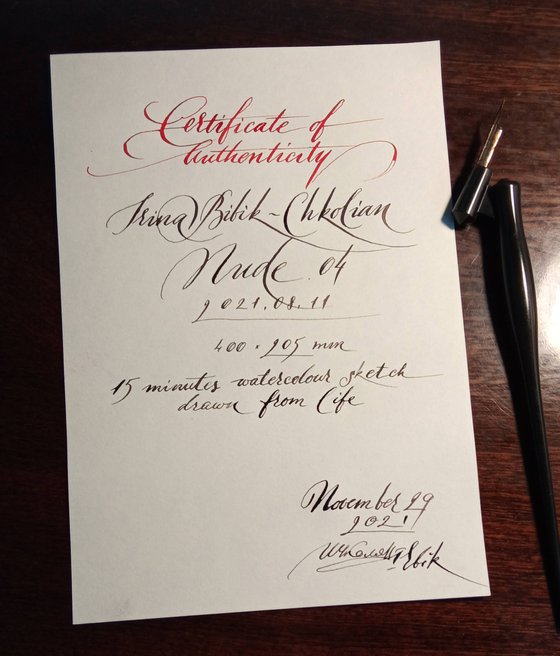 Certificate of
Authenticity
Irina Bibik-Chkolian
Nude 04
2021.08.11
400 · 205 mm
15 minutes watercolour sketch
drawn from life
November 29
2021